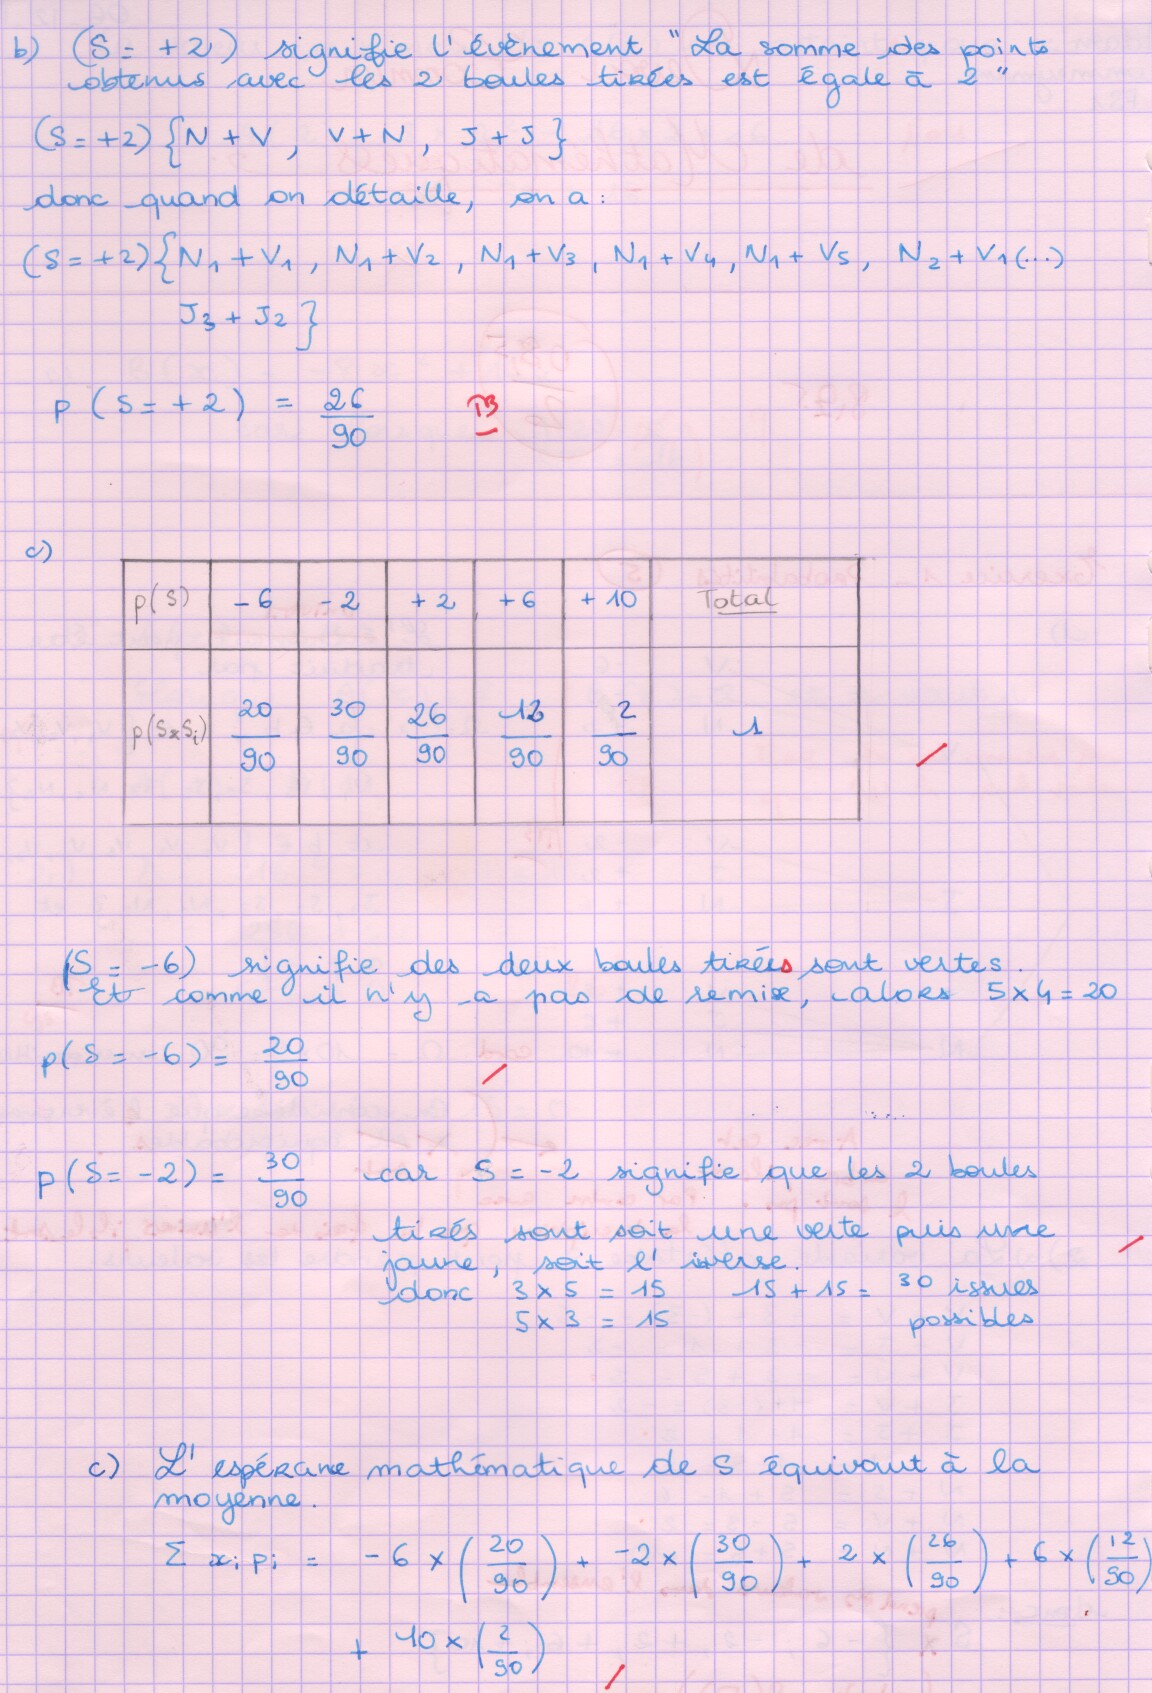 b) (S = +2) signifie l'évènement "La somme des points
obtenus avec les 2 boules tirées est égale à 2"
(S = +2) {N + V, V + N, J + J}
donc quand on détaille, on a :
(S = +2) {N1 + V1, N1 + V2, N1 + V3, N1 + V4, N1 + V5, N2 + V1 (...)
J3 + J2}
p (S = +2) = 26/90 TB
c)
p(S) -6 -2 +2 +6 +10 Total
p(S×Si) 20/90 30/90 26/90 12/90 2/90 1
(S = -6) signifie des deux boules tirées sont vertes.
Et comme il n'y a pas de remise, alors 5 x 4 = 20
p(S = -6) = 20/90
p(S = -2) = 30/90 car S = -2 signifie que les 2 boules
tirés sont soit une verte puis une
jaune, soit l'inverse.
donc 3 x 5 = 15 15 + 15 = 30 issues
5 x 3 = 15 possibles
c) L'espérane mathématique de S équivaut à la
moyenne.
Σ xi pi = -6 x (20/90) + -2 x (30/90) + 2 x (26/90) + 6 x (12/90)
+ 10 x (2/90)